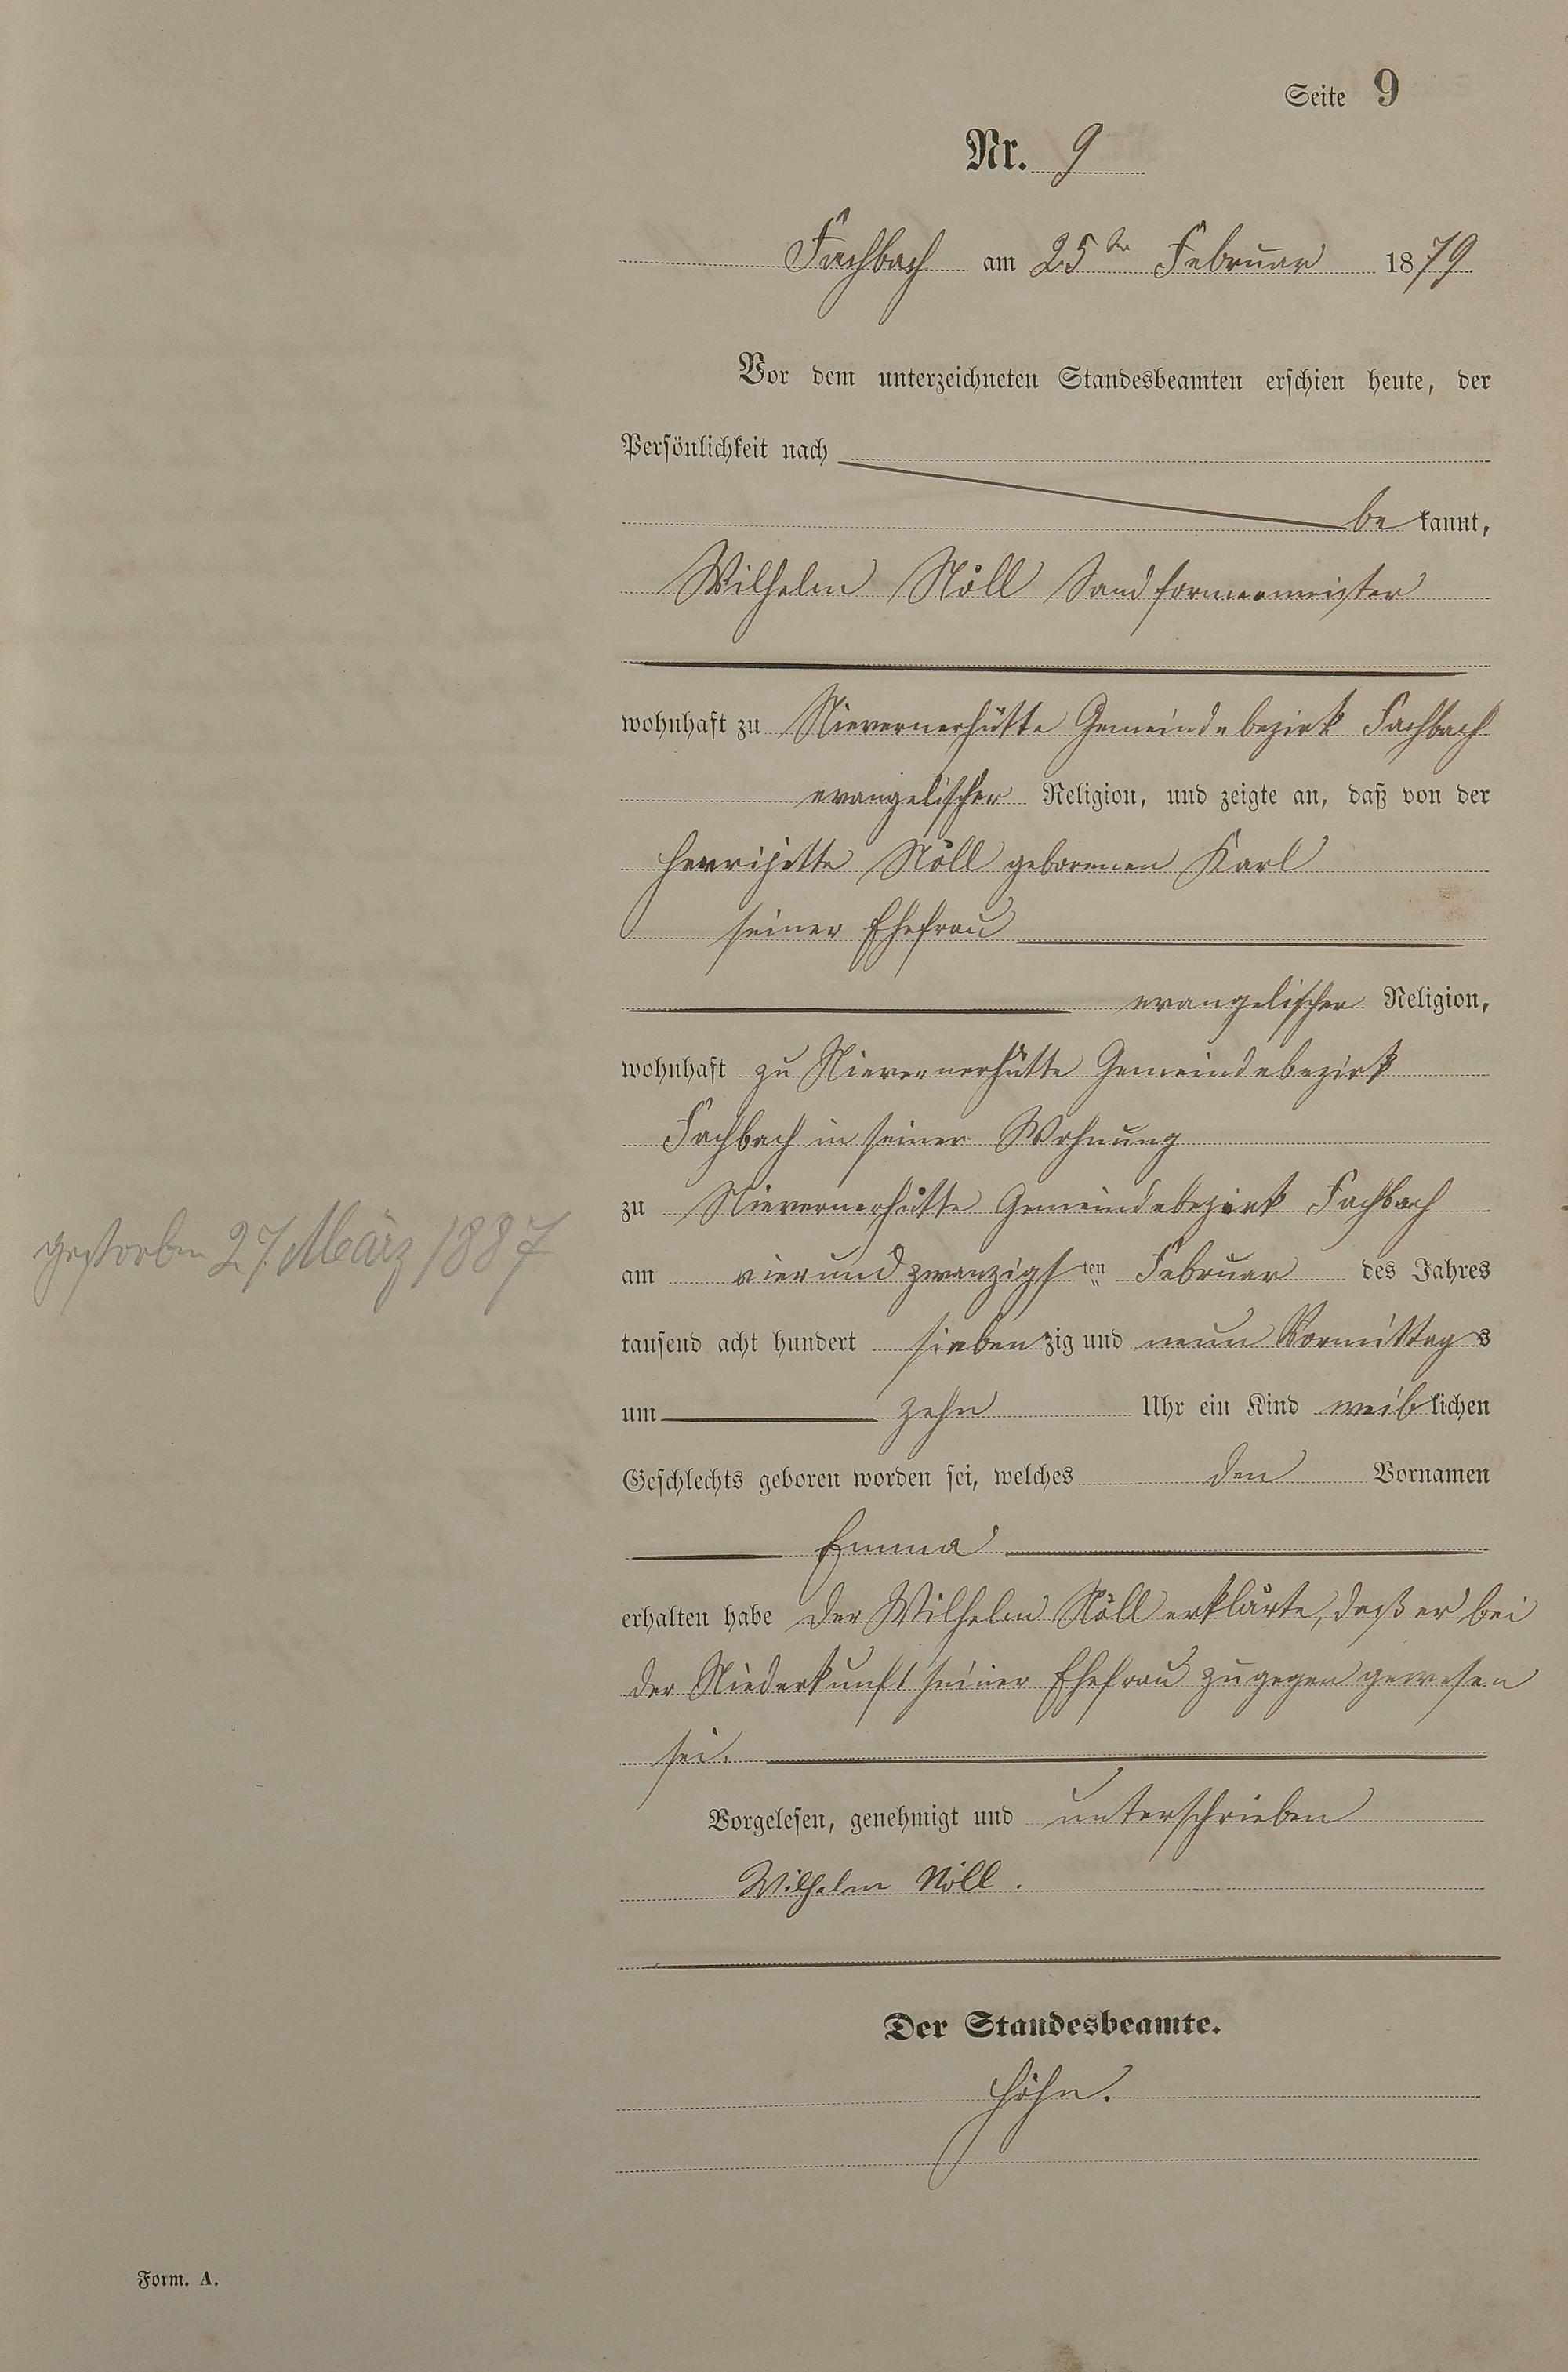 Seite 9
Nr. 9
Fachbach am 25ten Februar 1879
Vor dem unterzeichneten Standesbeamten erschien heute, der
Persönlichkeit nach
be kannt,
Wilhelm Nöll Sandformermeister
wohnhaft zu Nievernerhütte Gemeindebezirk Fachbach
evangelischer Religion, und zeigte an, daß von der
Henrijette Nöll geborenen Karl
seiner Ehefrau
evangelischer Religion,
wohnhaft zu Nievernerhütte Gemeindebezirk
Fachbach in seiner Wohnung
zu Nievernerhütte Gemeindebezirk Fachbach
gestorben 27. März 1887
am vierundzwanzigsten Februar des Jahres
tausend acht hundert siebenzig und neun Vormittags
um zehn Uhr ein Kind weiblichen
Geschlechts geboren worden sei, welches den Vornamen
Emma
erhalten habe der Wilhelm Nöll erklärte, daß er bei
der Niederkunft seiner Ehefrau zugegen gewesen
sei.
Vorgelesen, genehmigt und unterschrieben
Wilhelm Nöll.
Der Standesbeamte.
Höhn.
Form. A.